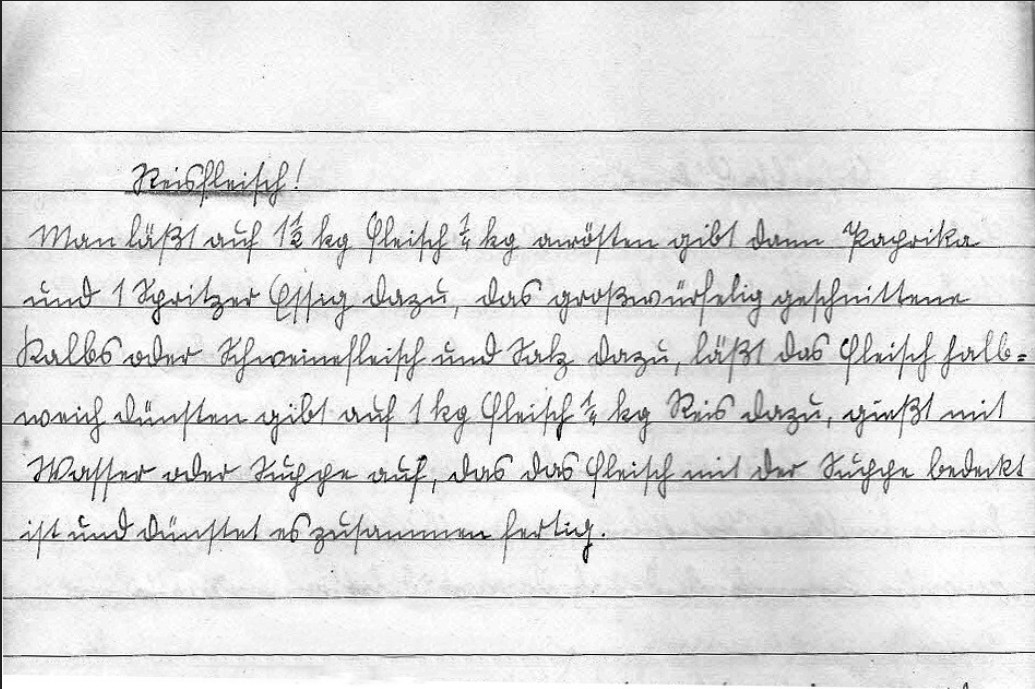 Reisfleisch!
Man läßt auf 1½ kg Fleisch ¼ kg anrösten gibt dann Paprika
und 1 Spritzer Essig dazu, das großwürfelig geschnittene
Kalbs oder Schweinefleisch und Salz dazu, läßt das Fleisch halb=
weich dünsten gibt auf 1 kg Fleisch ¼ kg Reis dazu, gießt mit
Wasser oder Suppe auf, das das Fleisch mit der Suppe bedeckt
ist und dünstet es zusammen fertig.